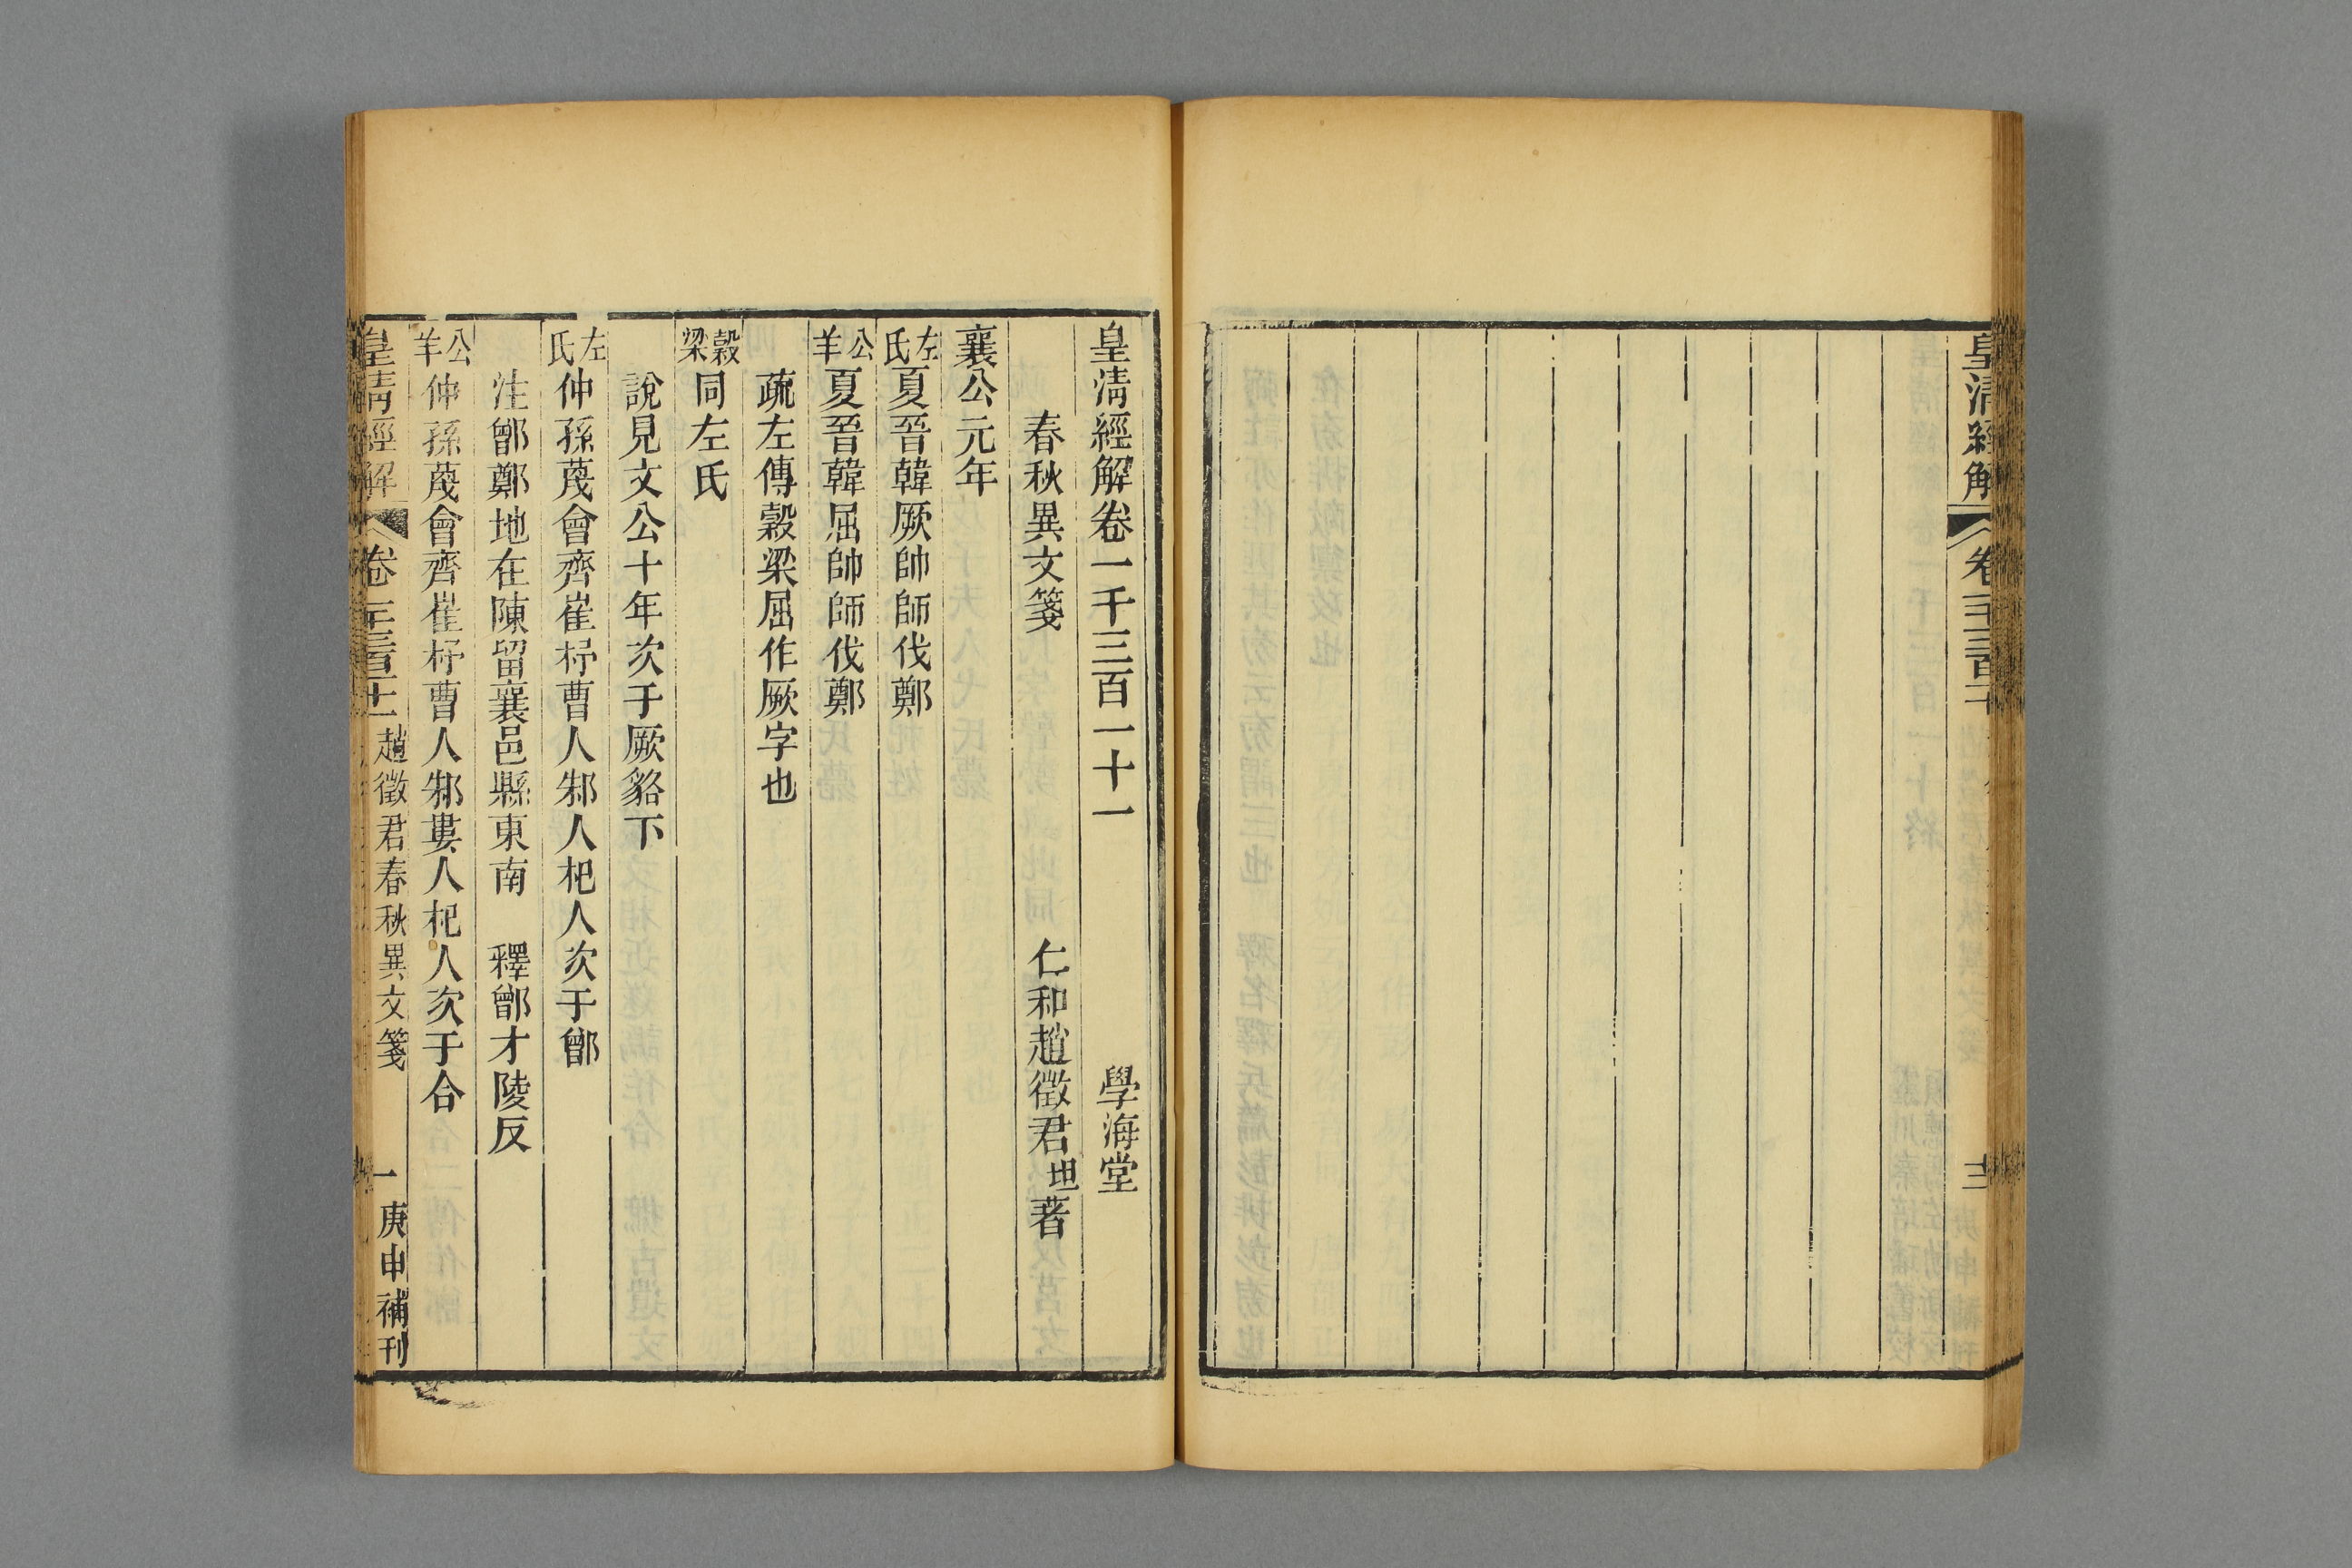 皇清經解
卷一千三百十
皇清經解卷一千三百一十一
學海堂
春秋異文箋
仁和趙徵君坦著
襄公元年
左氏夏晉韓厥帥師伐鄭
公羊夏晉韓屈帥師伐鄭
疏左傳穀梁屈作厥字也
穀梁同左氏
說見文公十年次于厥貉下
左氏仲孫蔑會齊崔杼曹人邾人杞人次于鄫
注鄫鄭地在陳留襄邑縣東南　釋鄫才陵反
公羊仲孫蔑會齊崔杼曹人邾婁人杞人次于合
皇清經解
卷一千三百十一
趙徵君春秋異文箋
一
庚申補刊